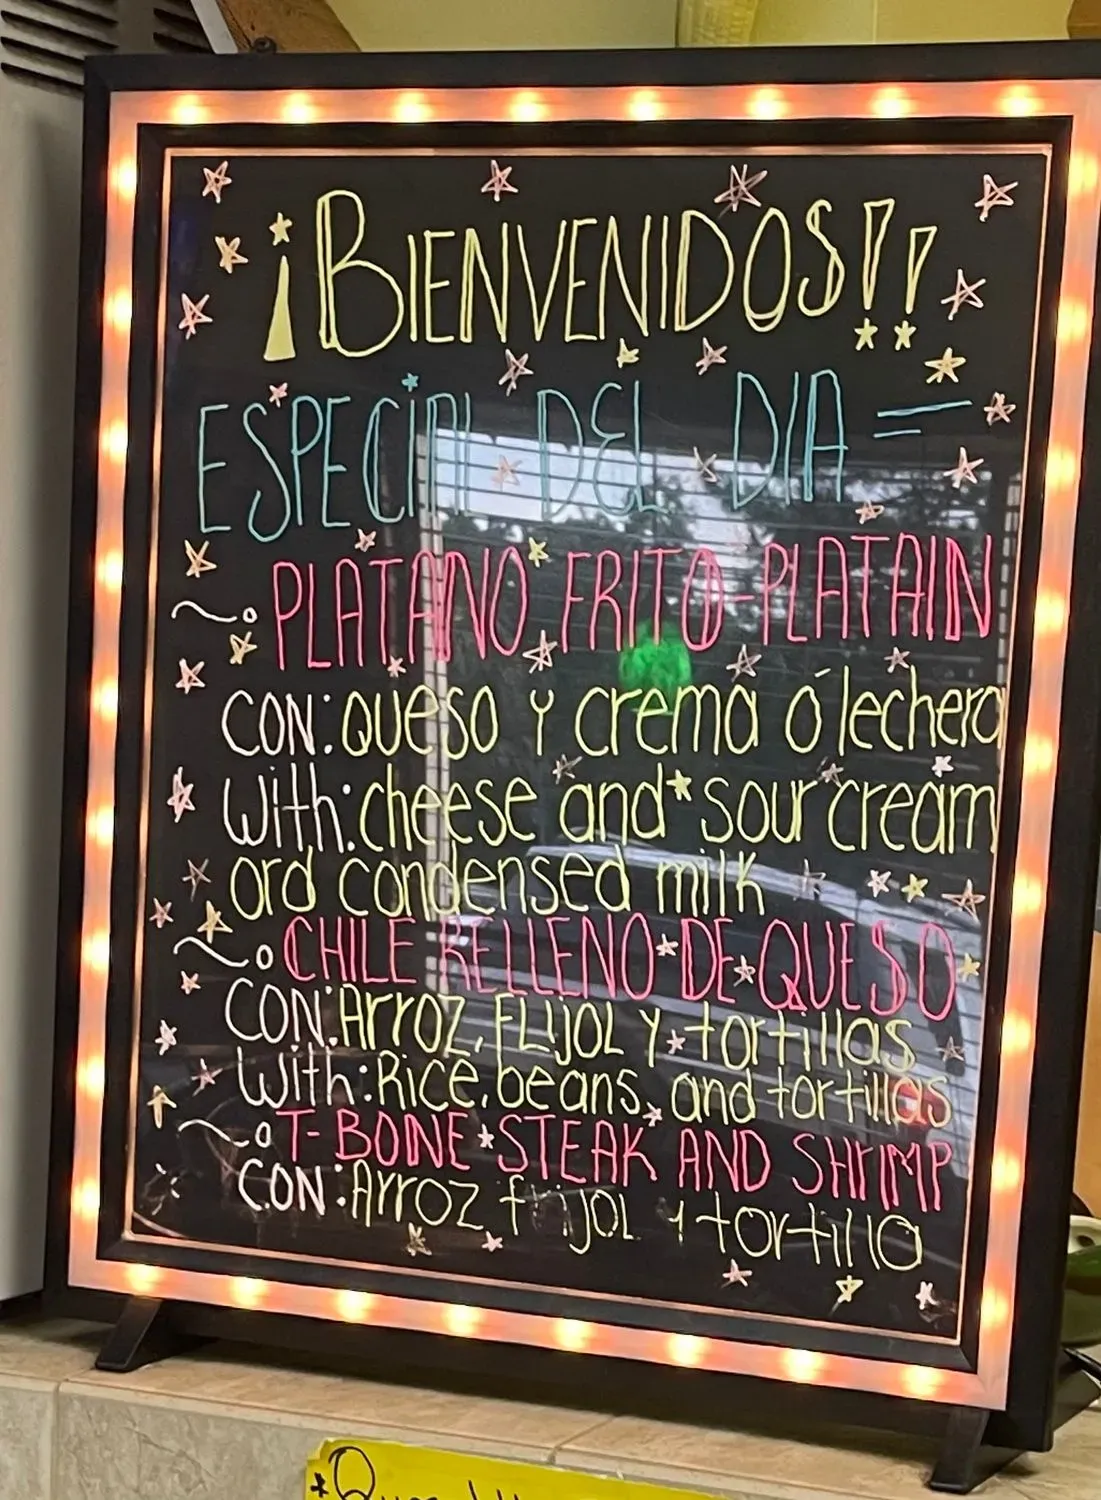 ¡BIENVENIDOS!!
ESPECIAL DEL DIA =
PLATANO FRITO-PLATAIN
CON: QUESO Y crema ó lechera
With: cheese and sour cream
ord condensed milk
CHILE RELLENO DE QUESO
CON: Arroz, FLIJOL Y tortillas
With: Rice, beans, and tortillas
T-BONE STEAK AND SHrIMP
CON: Arroz frijol y tortilla